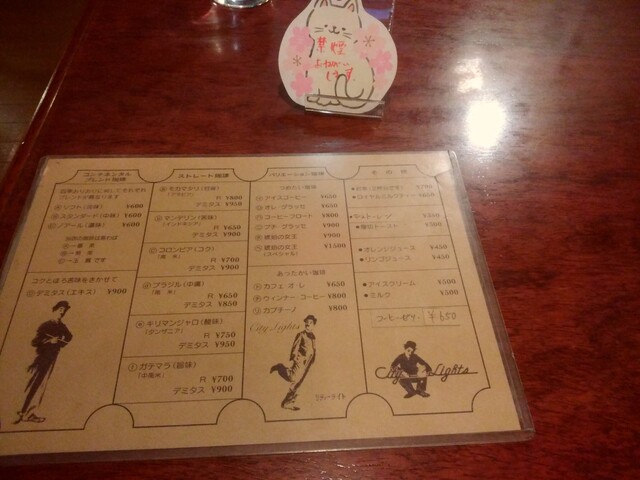 禁煙
おねがい
します
コンチネンタル
ブレンド珈琲
Ⓐソフト(淡味) ¥600
Ⓑスタンダード(中味) ¥600
Ⓒノアール(濃味) ¥600
コクとほろ苦味をきかせて
デミタス(エキス) ¥900
ストレート珈琲
R ¥800
デミタス ¥950
マンデリン(苦味)
(インドネシア)
R ¥650
デミタス ¥900
コロンビア(コク)
(南 米)
R ¥700
デミタス ¥900
ブラジル(中庸)
(南 米)
R ¥650
デミタス ¥850
キリマンジャロ(酸味)
(タンザニア)
R ¥750
デミタス ¥950
ガテマラ(旨味)
(中南米)
R ¥700
デミタス ¥900
バリエーション珈琲
つめたい珈琲
アイスコーヒー ¥650
オレ グラッセ ¥650
コーヒーフロート ¥800
プチ グラッセ ¥900
琥珀の女王 ¥900
琥珀の女王 ¥1500
(スペシャル)
あったかい珈琲
カフェ オレ ¥650
ウィンナー コーヒー ¥800
カプチーノ ¥800
City Lights
その他
ロイヤルミルクティー ¥650
¥550
オレンジジュース ¥450
リンゴジュース ¥450
アイスクリーム ¥500
ミルク ¥500
コーヒーゼリー ¥650
City Lights